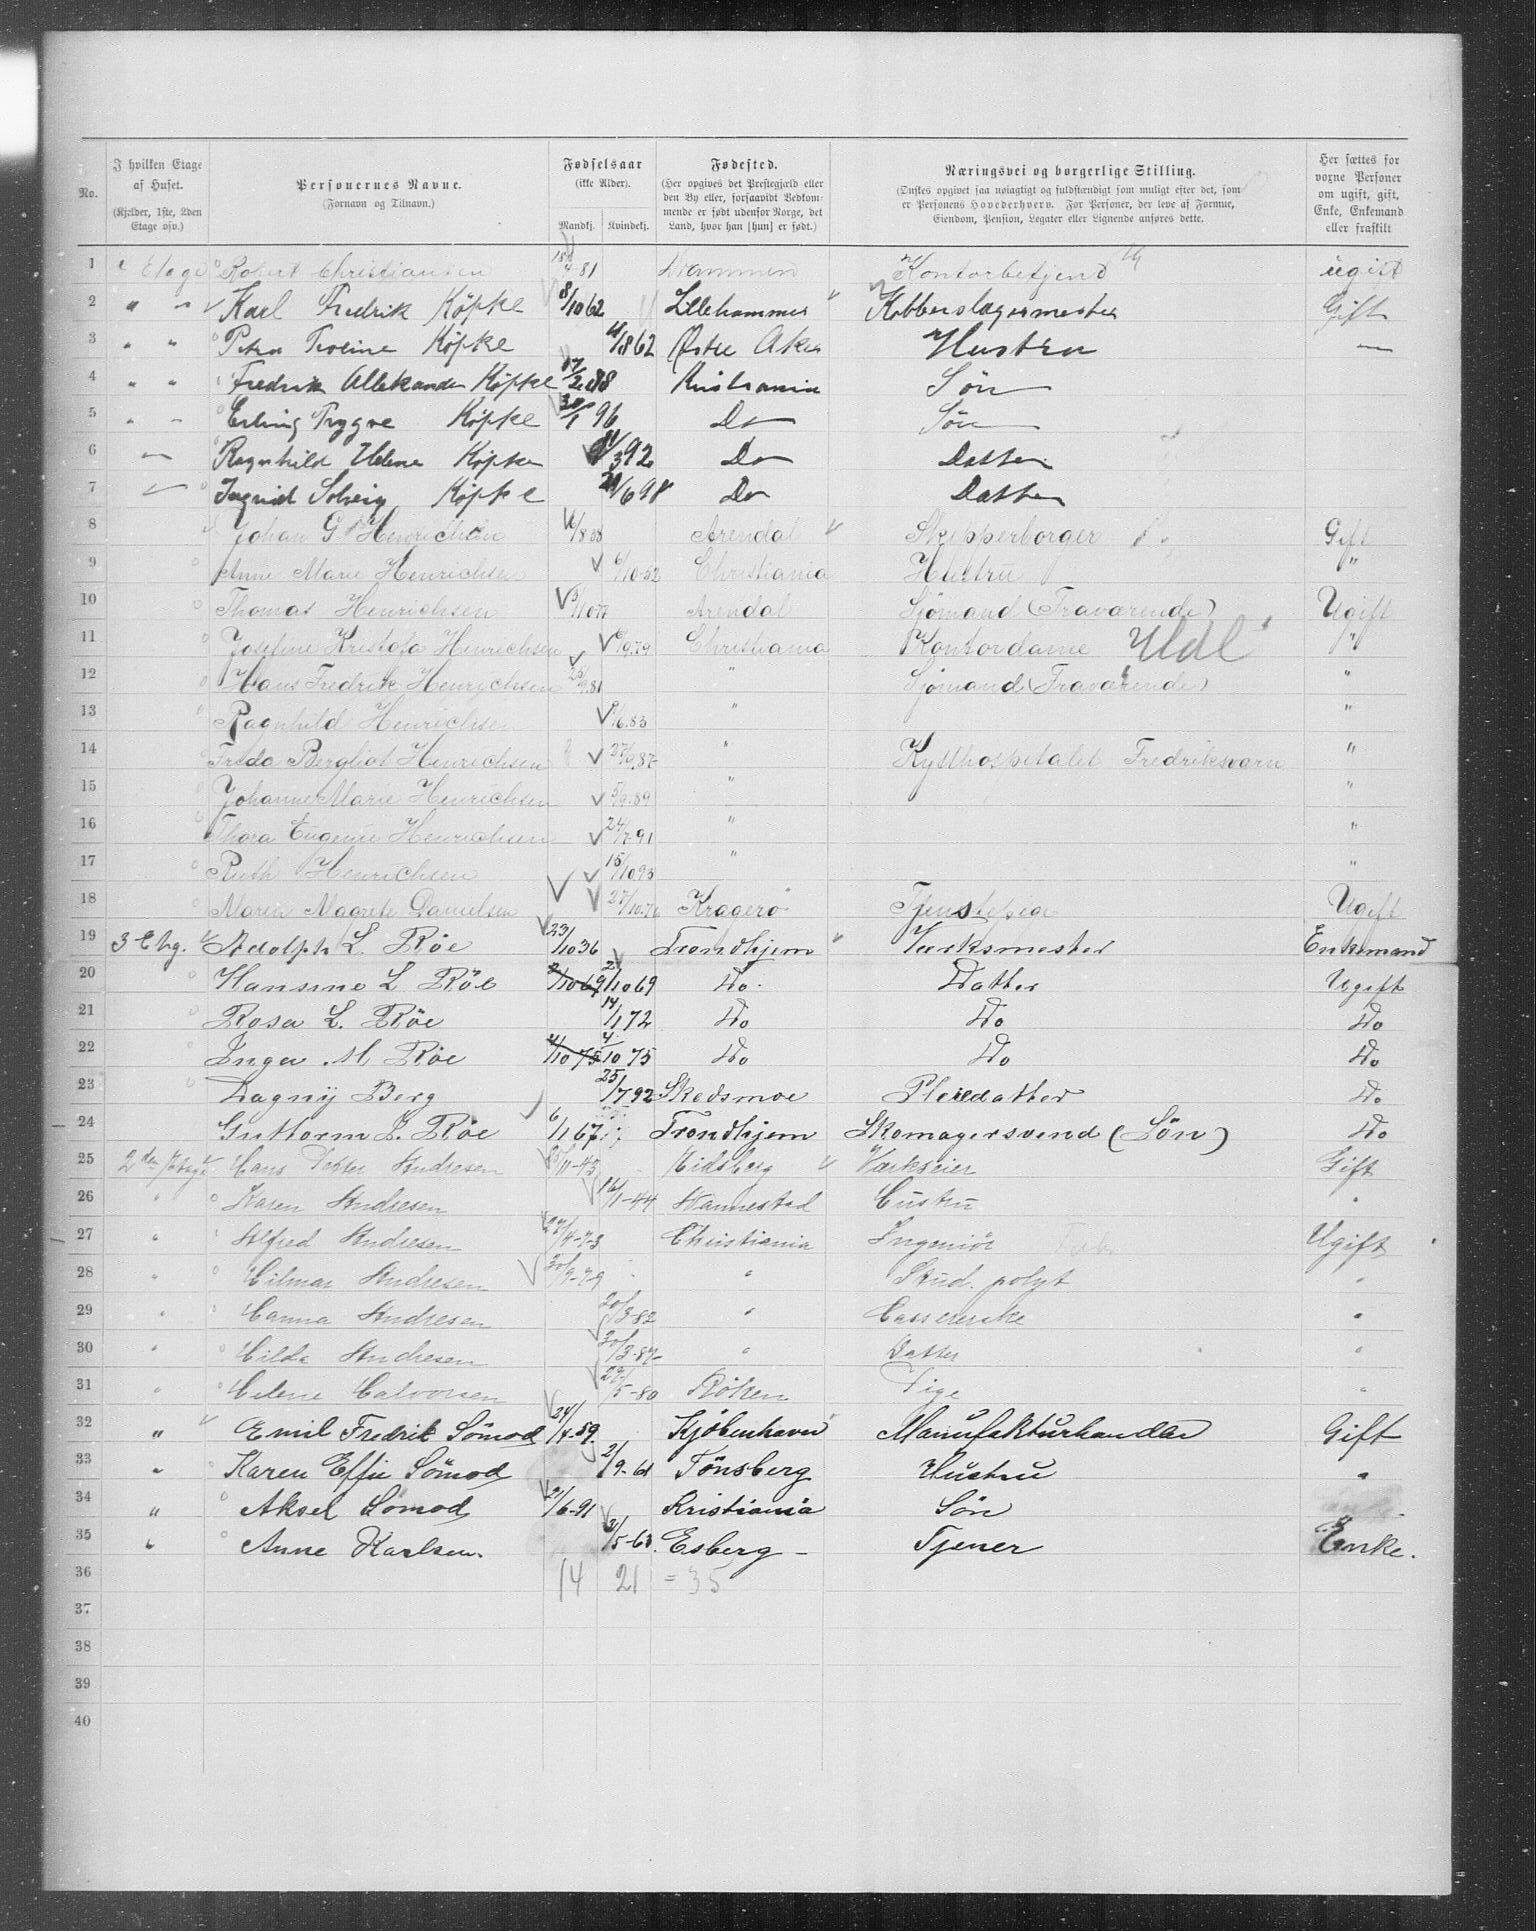 No. | I hvilken Etage af Huset. (Kjelder, 1ste, 2den Etage osv.) | Personernes Navne. (Fornavn og Tilnavn.) | Fødselsaar (ikke Alder). Mandkj. Kvindekj. | Fødested. (Her opgives det Prestegjæld eller den By eller, forsaavidt Vedkommende er født udenfor Norge, det Land, hvor han [hun] er født.) | Næringsvei og borgerlige Stilling. (Ønskes opgivet saa nøiagtigt og fuldstændigt som muligt efter det, som er Personens Hovederhverv. For Personer, der leve af Formue, Eiendom, Pension, Legater eller Lignende anføres dette. | Her sættes for voxne Personer om ugift, gift, Enke, Enkemand eller fraskilt
1 Etage Robert Christiansen 18/4 81 Drammen Kontorbetjent ugift
2 " " Karl Fredrik Köpke 8/10 62 Lillehammer Kobberslagermester Gift
3 " " Petra Köpke 4/8 62 Østre Aker Hustru —
4 " " Fredrik Alleksander Köpke 17/2 88 Kristiania Sön
5 " " Erling Trygve Köpke 30/1 96 Do Sön
6 " Ragnhild Helene Köpke 3 92 Do Datter
7 " Ingrid Solveig Köpke 6 98 Do Datter
8 Johan G Henrichsen 16/8 38 Arendal Skipperborger Gift
9 Anne Marie Henrichsen 6/10-52 Christiania Hustru "
10 Thomas Henrichsen 3/10 77 Arendal Sjömand (Fraværende) Ugift
11 Josefine Kristofa Henrichsen 9.79 Christiania Kontordame Udl "
12 Hans Fredrik Henrychsen 25/9.81 " Sjömand (Fraværende) "
13 Ragnhild Henrichsen 6.83 " "
14 Frida Bergliot Henrichsen 27/9.87 " Kysthospitalet Fredriksværn "
15 Johanne Marie Henrichsen 5/9.89 " "
16 Thora Eugenie Henrichsen 24/7-91 " "
17 Ruth Henrichsen 15/10 93 " "
18 Maren Magrete Danielsen 27/10.76 Kragerö Tjenstepige Ugift
19 3 Etg. Adolph L. Röe 23/10 36 Trondhjem Værksmester Enkemand
20 Hansine L Röe 2/10 69 2/10 69 Do. Datter Ugift
21 Rosa L. Röe 14/1 72 Do Do Do
22 Inga M Röe 4/10 75 4/10 75 Do Do Do
23 Dagny Berg 25/7 92 Skedsmoe Pleiedatter Do
24 Guttorm L. Röe 6/1 67 Trondhjem Skomagersvend (Sön) Do
25 2den Etage Hans Andresen 25/11-43 Eidsberg Værkseier Gift
26 " Karen Andresen 16/1-44 Vannestad Hustru "
27 " Alfred Andresen 4-73 Christiania Ingeniör Ugift
28 " Hilmar Andresen 30/9-79 " Stud. polyt "
29 " Hanna Andresen 20/3-82 " Kassererske "
30 " Hilda Andresen 30/3-87 " Datter "
31 " Helene Halvorsen 29/5-80 Röken Pige "
32 " Emil Fredrik Sömod 24/4-59. Kjöbenhavn Manufakturhandler Gift
33 " Karen Effie Sömod 2/9-61 Tönsberg Hustru "
34 " Aksel Sömod 21/6-91 Kristiania Sön
35 " Anne Karlsen. 5-63 Esberg - Tjener Enke.
36 14 21 = 35
37
38
39
40